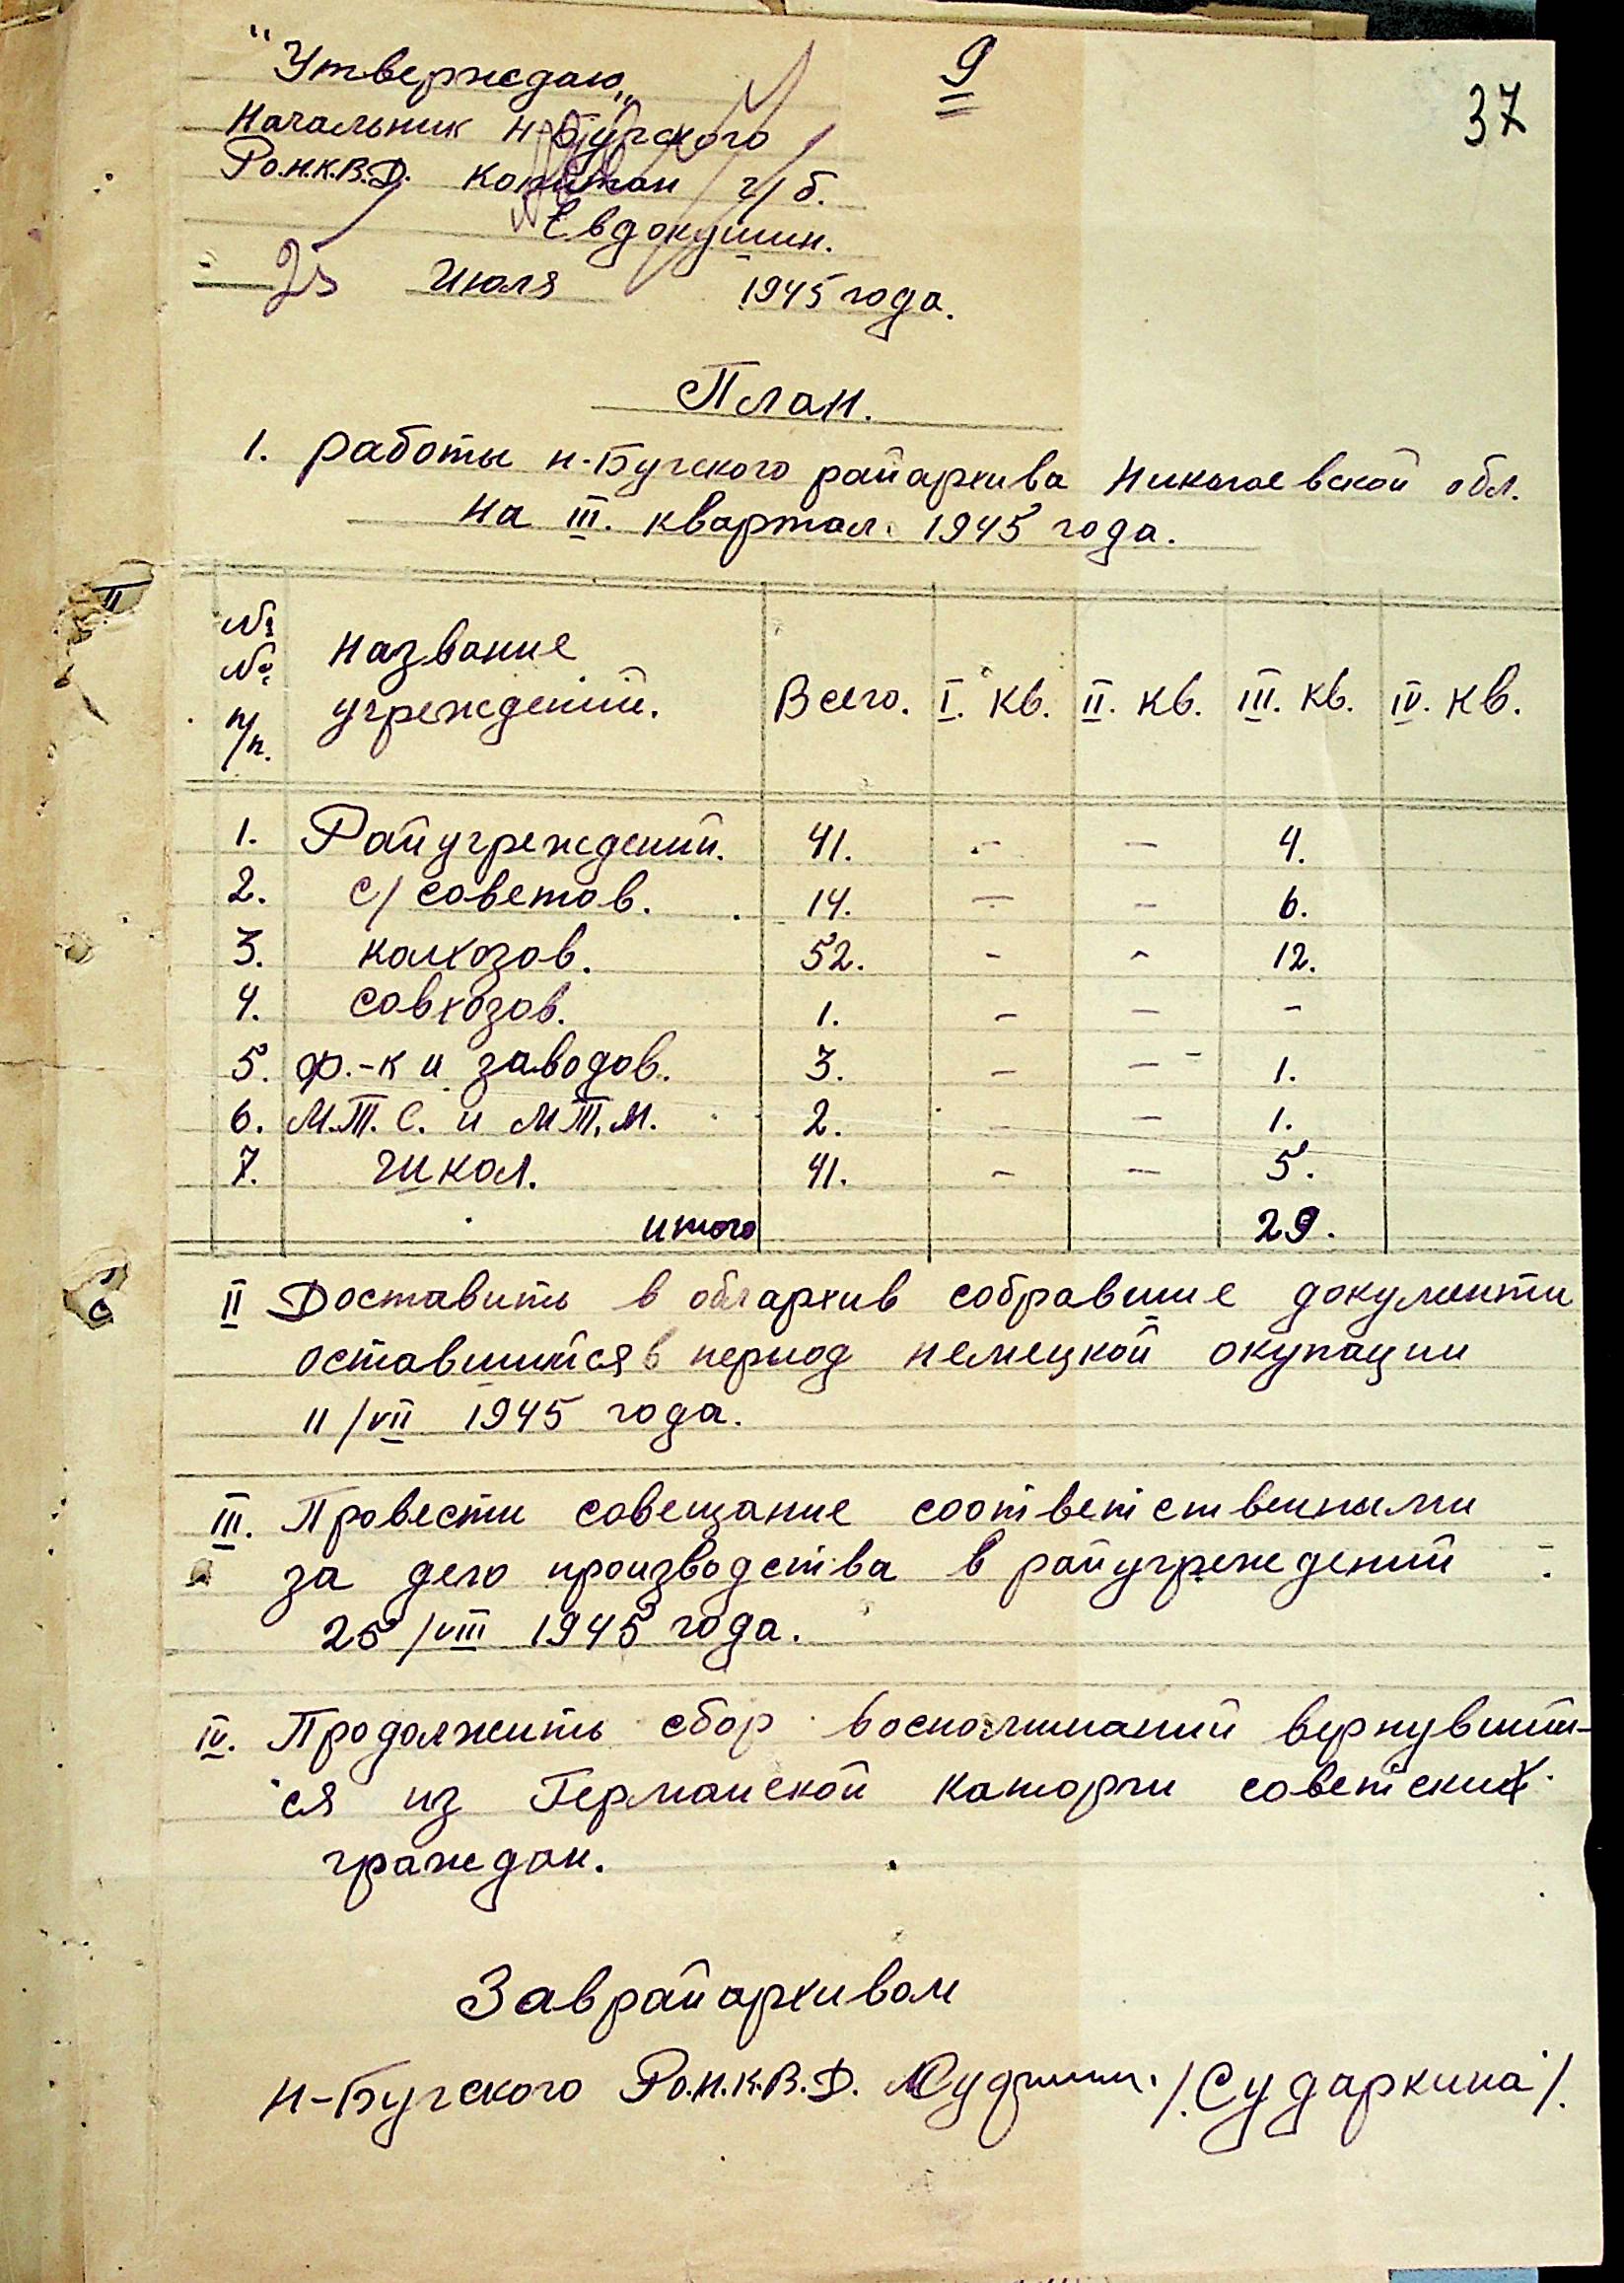 9
37
"Утверждаю„
Начальник Н-Бугского
Ро.Н.К.В.Д. Капитан г/б.
Евдокушин.
25 Июля 1945 года.
План.
1. работы Н-Бугского райархива Николаевской обл.
на III. квартал 1945 года.
№ № п/п. Название учреждений. Всего. I. кв. II. кв. III. кв. IV. кв.
1. Райучреждений. 41. - - 4.
2. с/советов. 14. - - 6.
3. колхозов. 52. - - 12.
4. совхозов. 1. - - -
5. ф.-к и заводов. 3. - - 1.
6. М.Т.С. и М.Т.М. 2. - - 1.
7. Школ. 41. - - 5.
итого 29.
II Доставить в облархив собравшие документи
оставшийся в период немецкой окупации
11/VII 1945 года.
III. Провести совещание соответственными
за дело производства в райучреждений
25/VIII 1945 года.
IV. Продолжить сбор воспоминаний вернувший-
ся из Германской каторги советских
граждан.
Заврайархивом
Н-Бугского Ро.Н.К.В.Д. /Сударкина/.